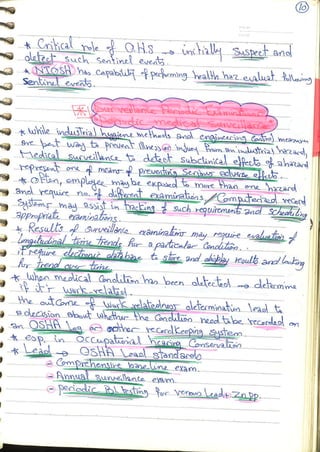 10
* Critical role of OHS → initially suspect and
detect such sentinel events.
* NIOSH has capability of performing health haz evaluat. following
Sentinel events.
* Surveillance Periodic Examination
periodic medical surveillance
* While industrial hygiene methods and engineering Control measures
are best ways to prevent illness or injury from an industrial hazard,
Medical surveillance to detect subclinical effects of a hazard
represent one of means of preventing serious adverse effects.
Often, employee may be exposed to more than one hazard
and require no. of different examinations. Computerized record
systems may assist in tracking of such requirements and scheduling
appropriate examinations
* Results of surveillance examination may require evaluation of
longitudinal time trends for a particular Condition.
it require electronic database to store and display results and looking
for trend over time
* when medical Condition has been detected → determine
if it's work-related.
the outcome of work relatedness determination lead to
decision about whether the Condition need to be recorded on
an OSHA log or other recordkeeping system
* esp. in Occupational hearing Conservation
* Lead → OSHA Lead standards
- Comprehensive baseline exam.
- Annual surveillance exam
- periodic BL testing for venous Lead + ZnPP.